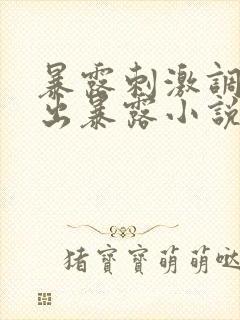 暴露刺激調
出暴露小說
猪寶寶萌萌噠